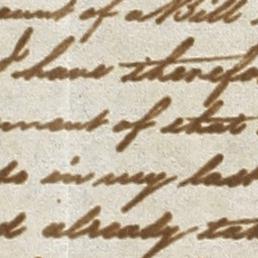 of a Bill
I have therefo
ment of that
in my last
already tak